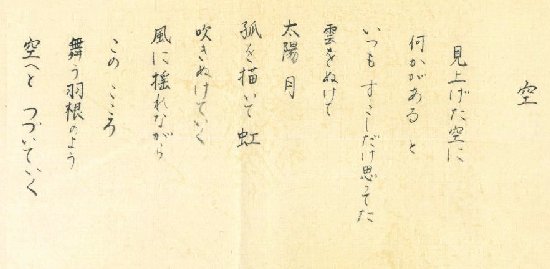 空
見上げた空に
何かがある と
いつも すこしだけ思ってた
雲をぬけて
太陽 月
弧を描いて 虹
吹きぬけていく
風に揺れながら
この こころ
舞う羽根のよう
空へと つづいていく